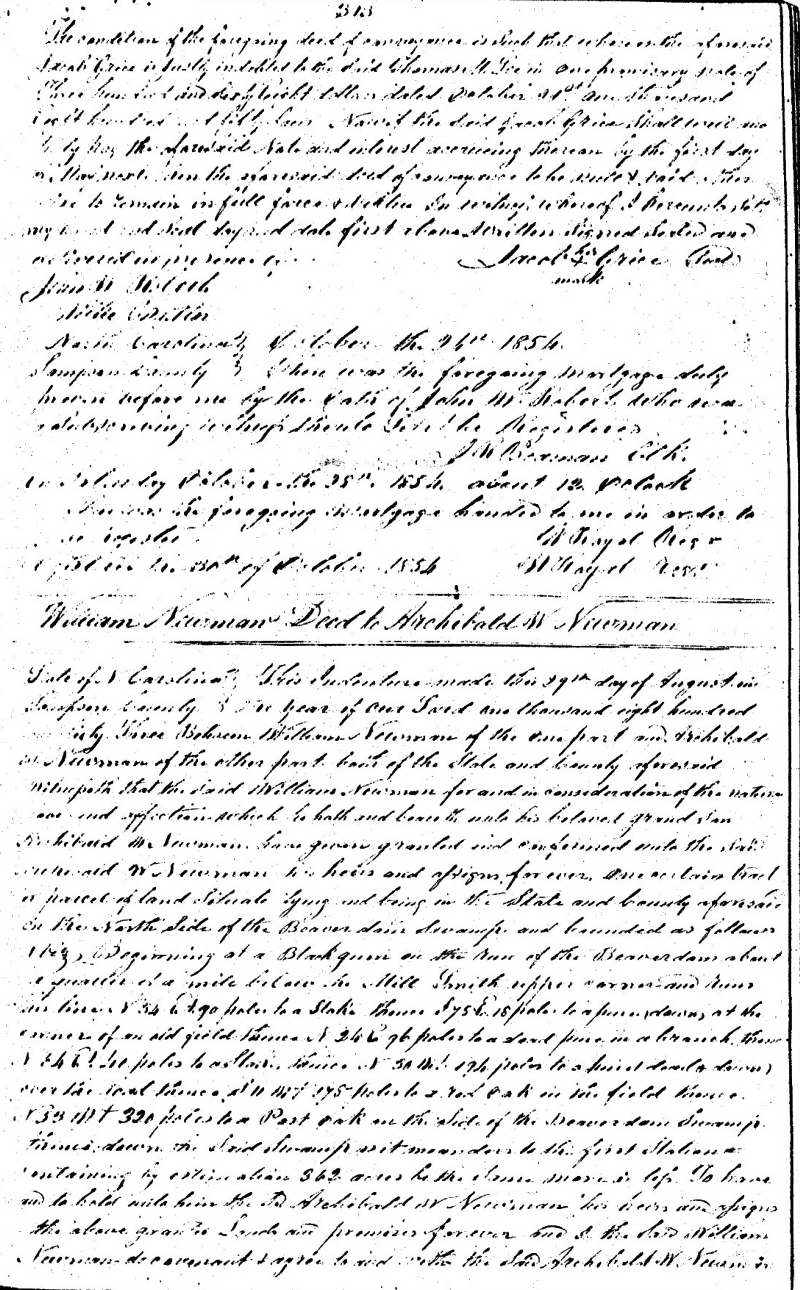 313
The condition of the foregoing deed of conveyance is Such that whereas the aforesaid
Jacob Grice is justly indebted to the Said Thomas in One promisory note of
Three hundred and Sixty Eight dollars dated October 21st One thousand
Eight hundred and fifty four Now if the Said Jacob Grice Shall well and
truly pay the aforesaid Note and interest accrueing thereon by the first day
of May next then the aforesaid deed of conveyance to be null & void other
wise to remain in full force & virtue In witness whereof I hereunto Set
my hand and Seal day and date first above written Signed Sealed and
delivered in presence of Jacob his X Grice Seal
mark
John W

North Carolina } October the 24th 1854
Sampson County } Then was the foregoing mortgage duly
proven before me by the Oath of John M who was
a subscribing witness thereto Let it be Registered
Beaman Clk.
October the 25th 1854 about 12 Oclock
Then was the foregoing mortgage handed to me in order to
be register W Royal Regr
in the 30th of October 1854 W Royal Regr
William Newman Deed to Archibald W Newman
State of N Carolina } This Indenture made this 29th day of August in
Sampson County } the year of our Lord one thousand eight hundred
Three Between William Newman of the One part and Archibald
W Newman of the other part both of the State and County aforesaid
Witnesseth that the said William Newman for and in consideration of the natural
love and affection which he hath and beareth unto his beloved grand Son
Archibald W Newman have given granted and confirmed unto the Said
Archibald W Newman his heirs and assigns forever, One certain tract
or parcel of land Situate lying and being in the State and County aforesaid
On the North Side of the Beaverdam Swamp and bounded as follows
(Viz) Beginning at a Blackgum on the run of the Beaverdam about
a quarter of a mile below the Mill Smith upper corner and runs
his line N 34 E 90 poles to a Stake thence S 75 E 18 poles to a pine, down, at the
corner of an old field thence N 24 E 96 poles to a dead pine in a branch, thence
N 54 E poles to a Stake thence N 30 W 194 poles to a pine dead & down
over the road thence S 11 Wt 175 poles to a red Oak in the field thence
N 33 Wt 320 poles to a Post Oak on the Side of the Beaverdam Swamp
thence down the Said Swamp as it meanders to the first Station
Containing by estimation 362 acres be the Same more or less To have
and to hold unto him the Sd Archibald W Newman his heirs and assigns
the above granted Lands and premises forever and I the Said William
Newman do covenant & agree to and with the Said Archibald W Newman